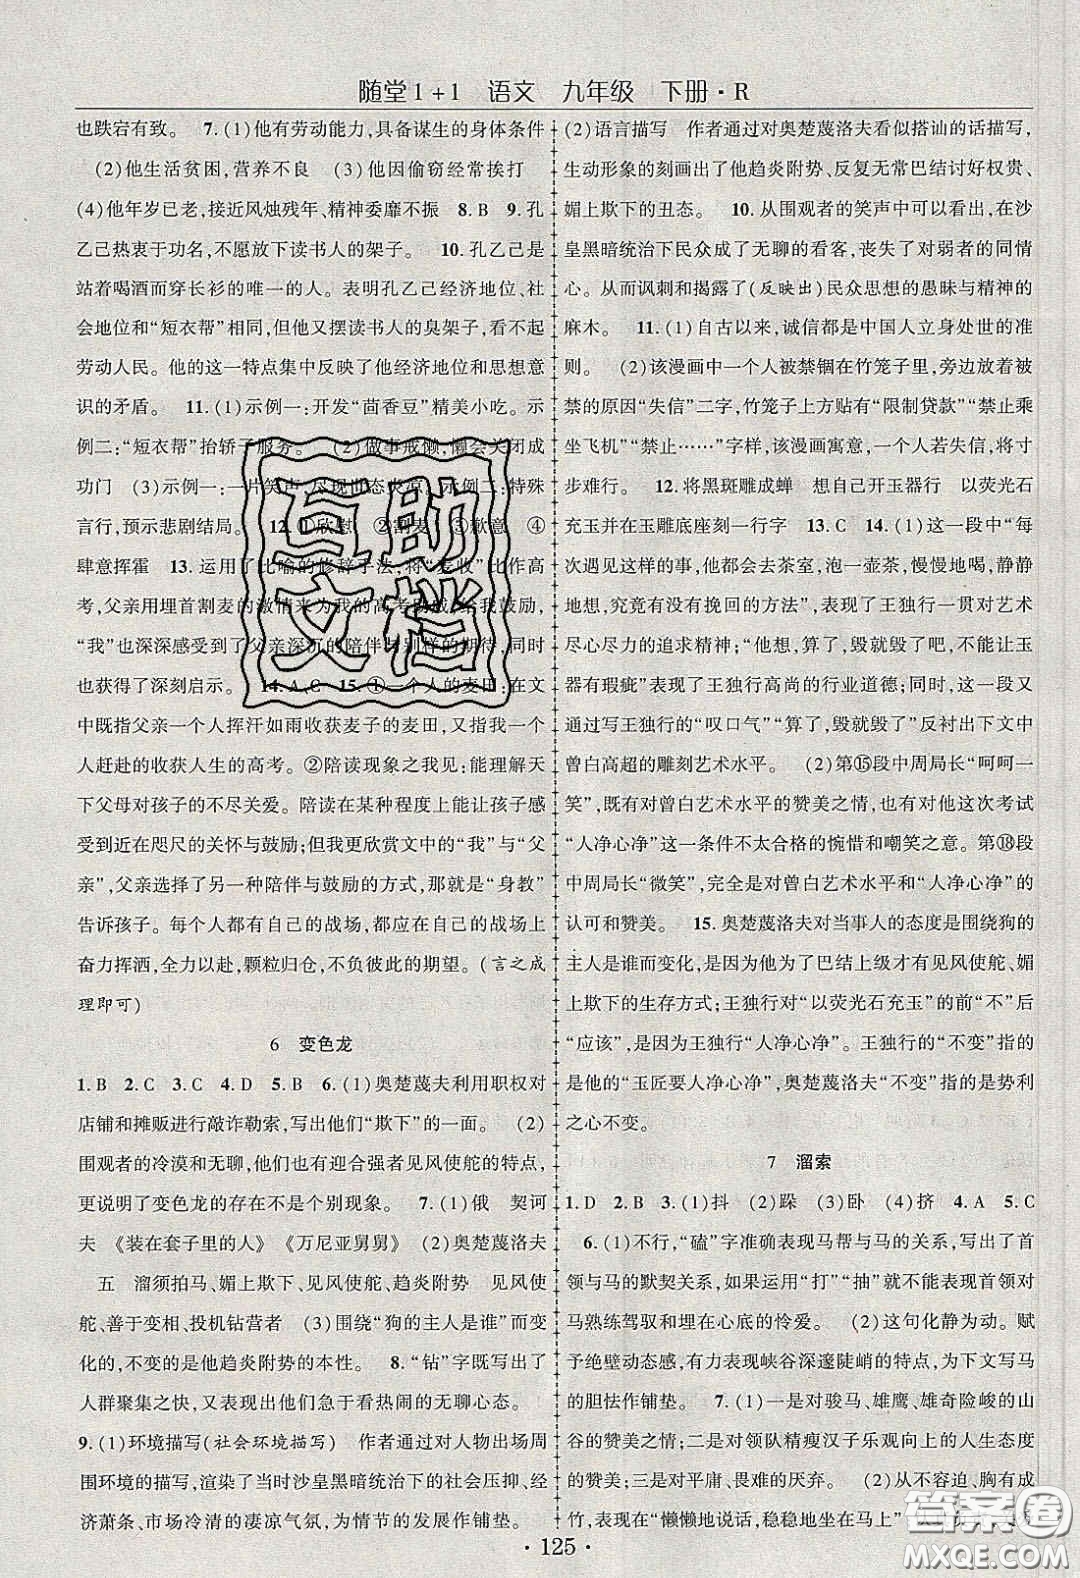 随堂1+1 语文 九年级 下册·R
也跌宕有致。 7.(1)他有劳动能力,具备谋生的身体条件
(2)他生活贫困,营养不良 (3)他因偷窃经常挨打
(4)他年岁已老,接近风烛残年、精神委靡不振 8.B 9.孔
乙己热衷于功名,不愿放下读书人的架子。 10.孔乙己是
站着喝酒而穿长衫的唯一的人。表明孔乙己经济地位、社
会地位和“短衣帮”相同,但他又摆读书人的臭架子,脱离
劳动人民。他的这一特点集中反映了他经济地位和思想意
识的矛盾。 11.(1)示例一:开发“茴香豆”精美小吃。示
例二:“短衣帮”抬轿子服务。 (2)做事戒懒,懒会关闭成
功门 (3)示例一:一片笑声,尽现世态炎凉。示例二:特殊
言行,预示悲剧结局。 12.①欣慰 ②割麦 ③歉意 ④
肆意挥霍 13.运用了比喻的修辞手法,将“麦收”比作高
考,父亲用埋首割麦的激情来为我的高考助威,给我鼓励,
“我”也深深感受到了父亲深沉的陪伴与别样的期待,同时
也获得了深刻启示。 14.A C 15.①一个人的麦田:在文
中既指父亲一个人挥汗如雨收获麦子的麦田,又指我一个
人赶赴的收获人生的高考。②陪读现象之我见:能理解天
下父母对孩子的不尽关爱。陪读在某种程度上能让孩子感
受到近在咫尺的关怀与鼓励;但我更欣赏文中的“我”与“父
亲”,父亲选择了另一种陪伴与鼓励的方式,那就是“身教”
告诉孩子。每个人都有自己的战场,都应在自己的战场上
奋力挥洒,全力以赴,颗粒归仓,不负彼此的期望。(言之成
理即可)
6 变色龙
1.B 2.C 3.C 4.D 5.B 6.(1)奥楚蔑夫利用职权对
店铺和摊贩进行敲诈勒索,写出他们“欺下”的一面。 (2)
围观者的冷漠和无聊,他们有迎合强者见风使舵的特点,
更说明了变色龙的存在不是个别现象。 7.(1)俄 契诃
夫 《装在套子里的人》《万尼亚舅舅》 (2)奥楚蔑洛夫
五 溜须拍马、媚上欺下、见风使舵、趋炎附势 见风使
舵、善于变相、投机钻营者 (3)围绕“狗的主人是谁”而变
化的,不变的是他趋炎附势的本性。 8.“钻”字写出了
人群聚集之快,又表现出当时看热闹的无聊心态。
9.(1)环境描写(社会环境描写) 作者通过对人物出场周
围环境的描写,渲染了当时沙皇黑暗统治下的社会压抑、经
济萧条、市场冷清的凄凉气氛,为情节的发展作铺垫。
(2)语言描写 作者通过对奥楚蔑洛夫看似搭讪的话描写,
生动形象的刻画出了他趋炎附势、反复无常巴结讨好权贵、
媚上欺下的丑态。 10.从围观者的笑声中可以看出,在沙
皇黑暗统治下民众成了无聊的看客,丧失了对弱者的同情
心。从而讽刺和揭露了(反映出)民众思想的愚昧与精神的
麻木。 11.(1)自古以来,诚信都是中国人立身处世的准
则。 (2)该漫画中一个人被禁锢在竹笼子里,旁边放着被
禁的原因“失信”二字,竹笼子上方贴有“限制贷款”“禁止乘
坐飞机”“禁止……”字样,该漫画寓意,一个人若失信,将寸
步难行。 12.将黑斑雕成蝉 想自己开玉器行 以荧光石
充玉并在玉雕底座刻一行字 13.C 14.(1)这一段中“每
次遇见这种情况,他都会去茶室,泡一壶茶,慢慢地喝,静静
地想,究竟有没有挽回的方法”,表现了王独行一贯对艺术
尽心尽力的追求精神;“他想,算了,毁就毁了吧,不能让玉
器有瑕疵”表现了王独行高尚的行业道德;同时,这一段又
通过写王独行的“叹口气”“算了,毁就毁了”反衬出下文中
曾白高超的雕刻艺术水平。 (2)第⑮段中周局长“呵呵一
笑”,既有对曾白艺术水平的赞美之情,也有对他这次考试
“人净心净”这一条件不太合格的惋惜和嘲笑之意。第⑱段
中周局长“微笑”,表现了他对曾白艺术水平和“人净心净”的
认可和赞美。 15.奥楚蔑洛夫对当事人的态度是围绕狗的
主人是谁而变化,这是因为他为了巴结上级才有见风使舵、媚
上欺下的生存方式;王独行对“以荧光石充玉”的前“不”后
“应该”,是因为王独行“人净心净”。王独行的“不变”指的
是他的“玉匠要人净心净”,奥楚蔑洛夫“不变”指的是势利
之心不变。
7 溜索
1.D 2.B 3.(1)抖 (2)跺 (3)卧 (4)挤 4.A 5.C
6.(1)不行,“磕”字准确表现马帮与马的关系,写出了首
领与马的默契关系,如果运用“打”“抽”就不能表现首领对
马熟练驾驭和埋在心底的怜爱。 (2)这句化静为动。赋
予绝壁动态感,有力表现峡谷深邃陡峭的特点,为下文写马
的胆怯作铺垫。 7.(1)一是对骏马、雄鹰、雄奇险峻的山
谷的赞美之情;二是对领队精瘦汉子乐观向上的人生态度
的赞美;三是对平庸、畏难的厌弃。 (2)从不容迫、胸有成
竹,表现在“懒懒地说话,稳稳地坐在马上”
· 125 ·
互助
文档
答案圈
MXQE.COM